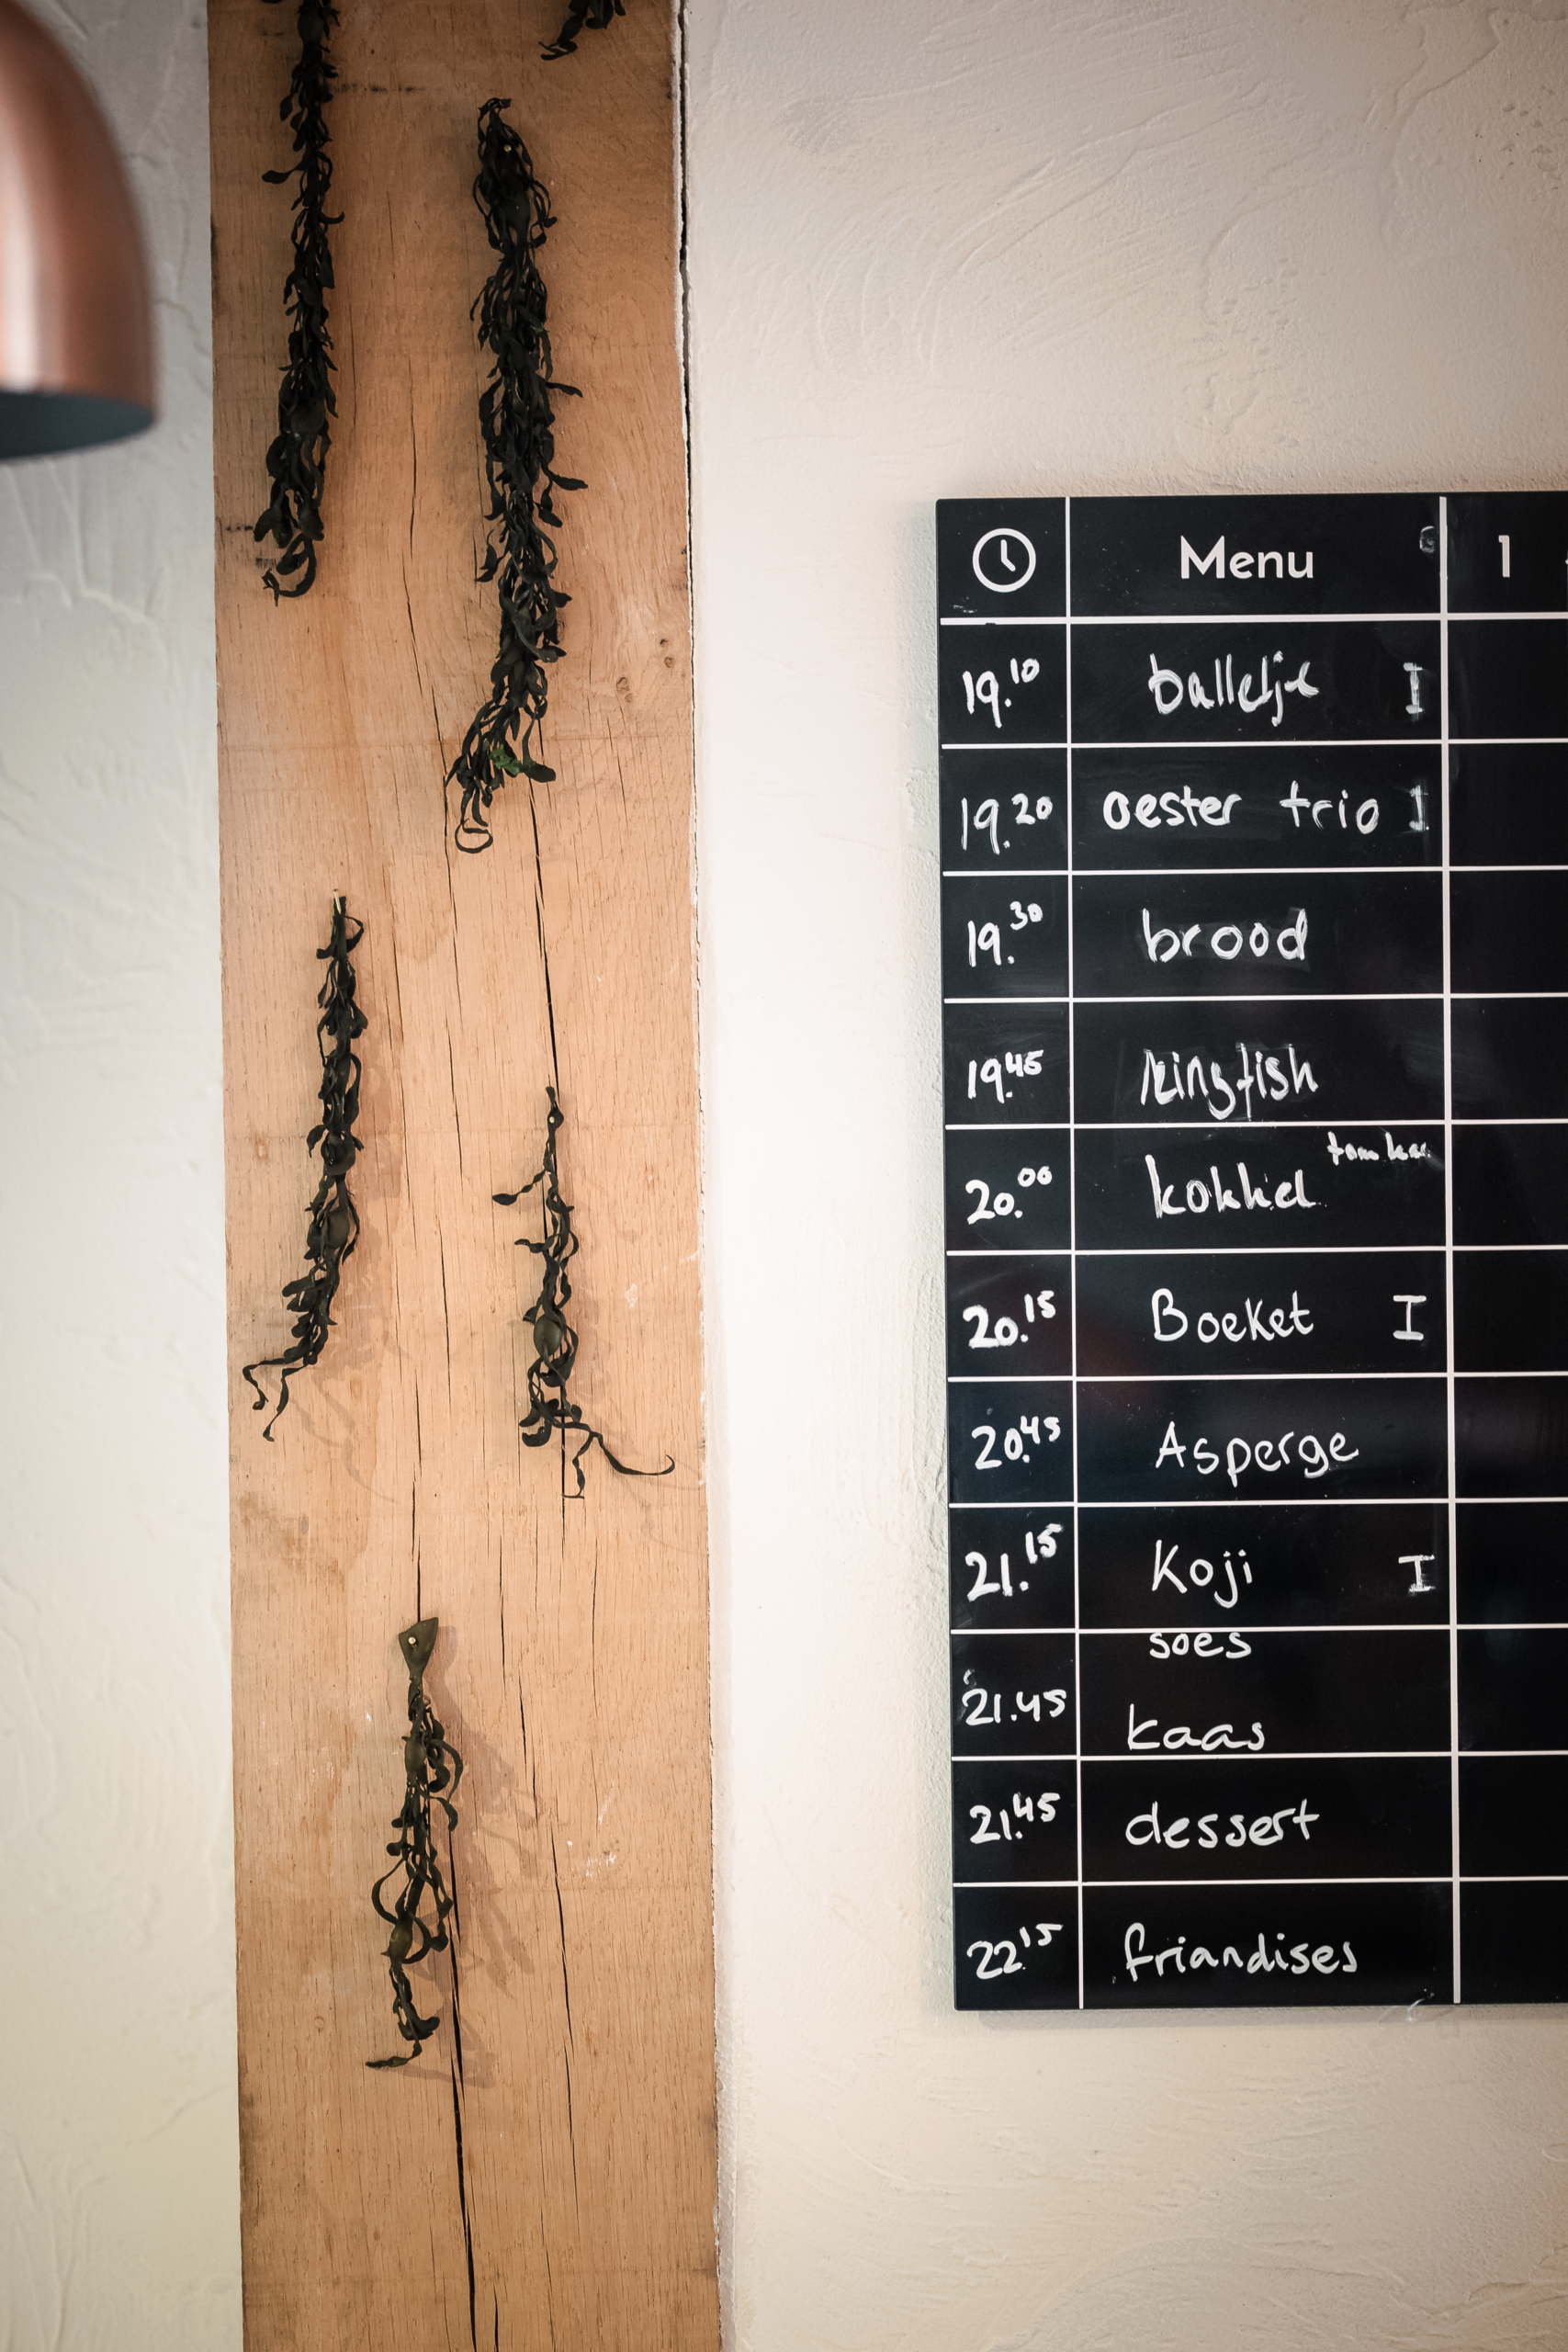 Menu 1
19.10 balletje I
19.20 oester trio I
19.30 brood
19.45 kingfish
20.00 kokkel tom ka
20.15 Boeket I
20.45 Asperge
21.15 Koji I
soes
21.45 kaas
21.45 dessert
22.15 friandises